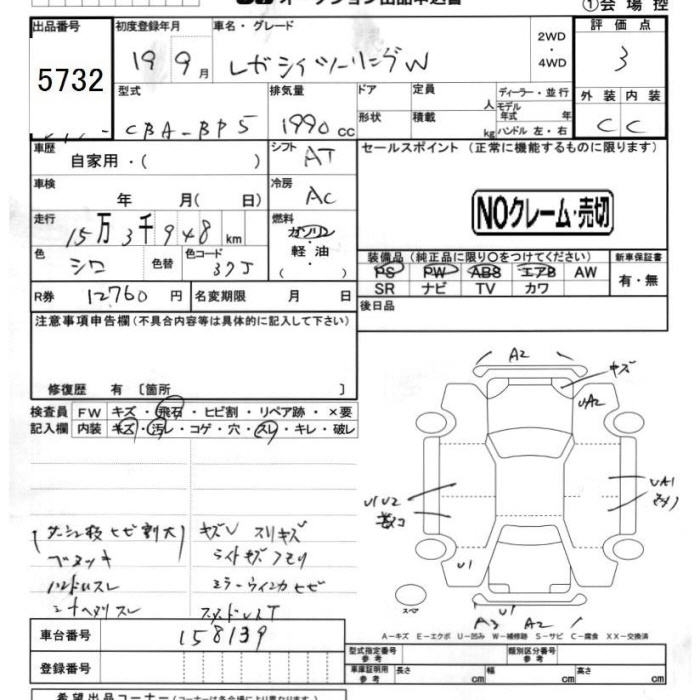 ①会場控
出品番号
5732
初度登録年月
19 9月
車名・グレード
レガシィツーリングW
2WD
・
4WD
評価点
3
型式
CBA-BP5
排気量
1990 cc
ドア
定員
人
形状
積載
kg
ディーラー・並行
モデル年式 年
ハンドル 左・右
外装 内装
C C
車歴
自家用・( )
シフト
AT
セールスポイント (正常に機能するものに限ります)
車検
年 月( 日)
冷房
AC
NOクレーム・売切
走行
15万3千948km
燃料
ガソリン
軽油
( ・ )
色
シロ
色替
色コード
37J
装備品 (純正品に限り○をつけてください)
PS PW ABS エアB AW
SR ナビ TV カワ
新車保証書
有・無
R券
12760円
名変期限 月 日
後日品
注意事項申告欄 (不具合内容等は具体的に記入して下さい)
修復歴 有 〔箇所 〕
検査員
記入欄
FW キズ・飛石・ヒビ割・リペア跡・×要
内装 キズ・汚レ・コゲ・穴・スレ・キレ・破レ
A2
キズ
UA2
U1U2
UA1
U1
U1
A3 A2
スペア
ダッシュ板ヒビ割大
キズU スリキズ
ライトキズ クモリ
ハンドルスレ
ミラーウィンカヒビ
シートヘタリスレ
車台番号
158139
登録番号
A-キズ E-エクボ U-凹み W-補修跡 S-サビ C-腐食 XX-交換済
型式指定番号
参考
類別区分番号
参考
車庫証明用
参考
長さ cm
幅 cm
高さ cm
希望出品コーナー